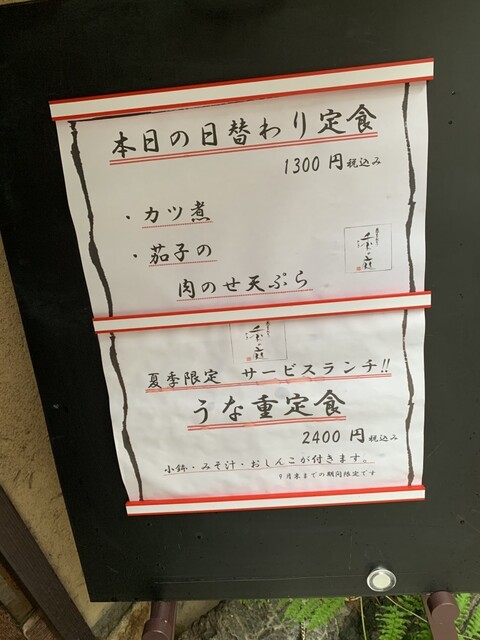 本日の日替わり定食
1300 円 税込み
・カツ煮
・茄子の
肉のせ天ぷら
夏季限定 サービスランチ!!
うな重定食
2400 円 税込み
小鉢・みそ汁・おしんこが付きます。
9月末までの期間限定です